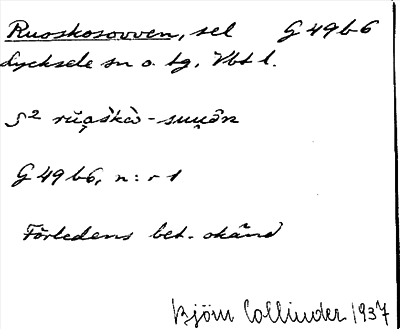 Ruoskosovven, sel G 49 b 6
Lycksele sn o. tg. Vbt l.
§2 rŭo̯škə̀-suu̯ôn
G 49 b 6, n:r 1
Förledens bet. okänd
Björn Collinder 1937